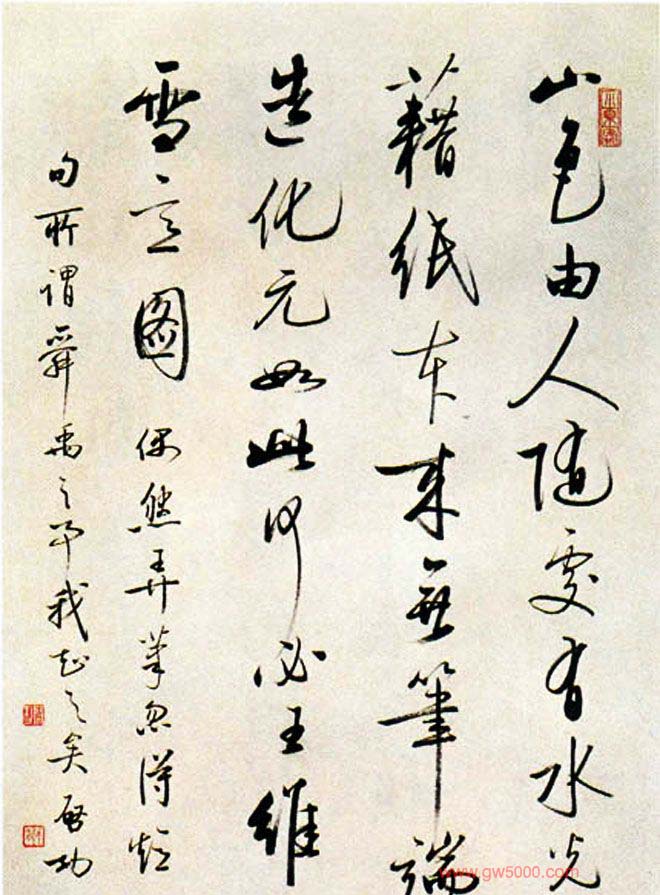 山色由人随处有水光
藉纸本来无笔端
造化元如此何必王维
雪意图 偶然弄笔忽得短
句所谓舜禹之事我知之矣 启功
www.gw5000.com